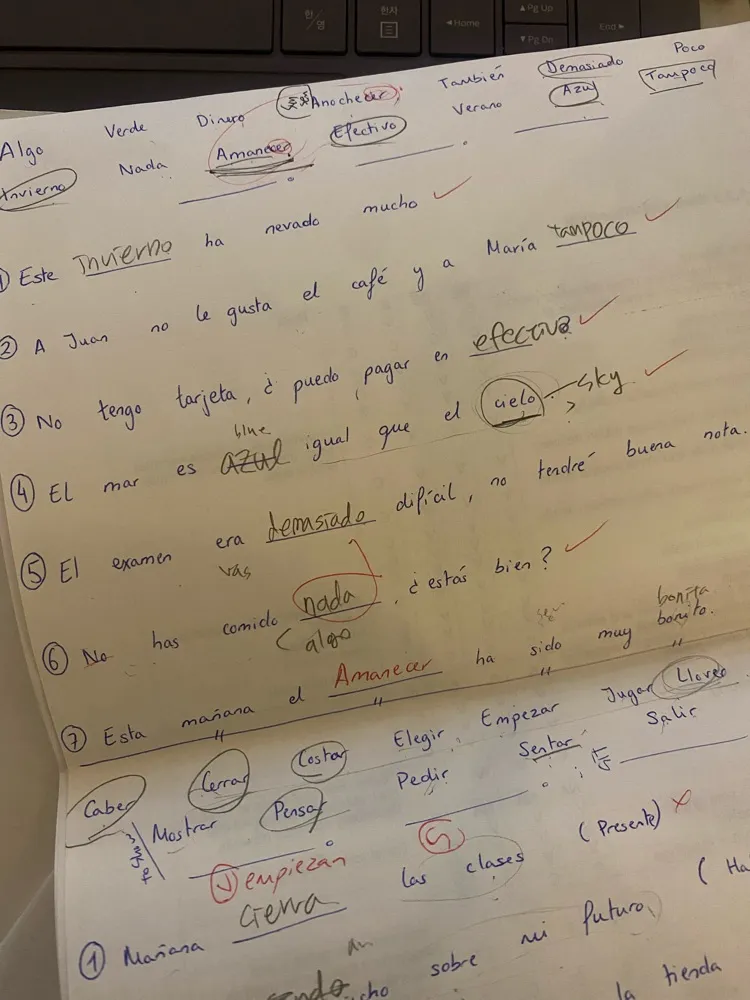 한/영 한자 ◄Home ▲Pg Up ▼Pg Dn End►
Algo Verde Dinero Anochecer También Demasiado Poco
Invierno Nada Amanecer Efectivo Verano Azul Tampoco
① Este Invierno ha nevado mucho
② A Juan no le gusta el café y a María tampoco
③ No tengo tarjeta, ¿puedo pagar en efectivo
blue
④ El mar es azul igual que el cielo ? sky
⑤ El examen era demasiado difícil, no tendré buena nota.
vas
⑥ No has comido nada, ¿estás bien?
algo
bonita
⑦ Esta mañana el Amanecer ha sido muy bonito.
Caber Cerrar Costar Elegir Empezar Jugar Llover
Mostrar Pensar Pedir Sentar Salir
empiezan
① Mañana cierra las clases (Presente)
sobre mi futuro
la tienda